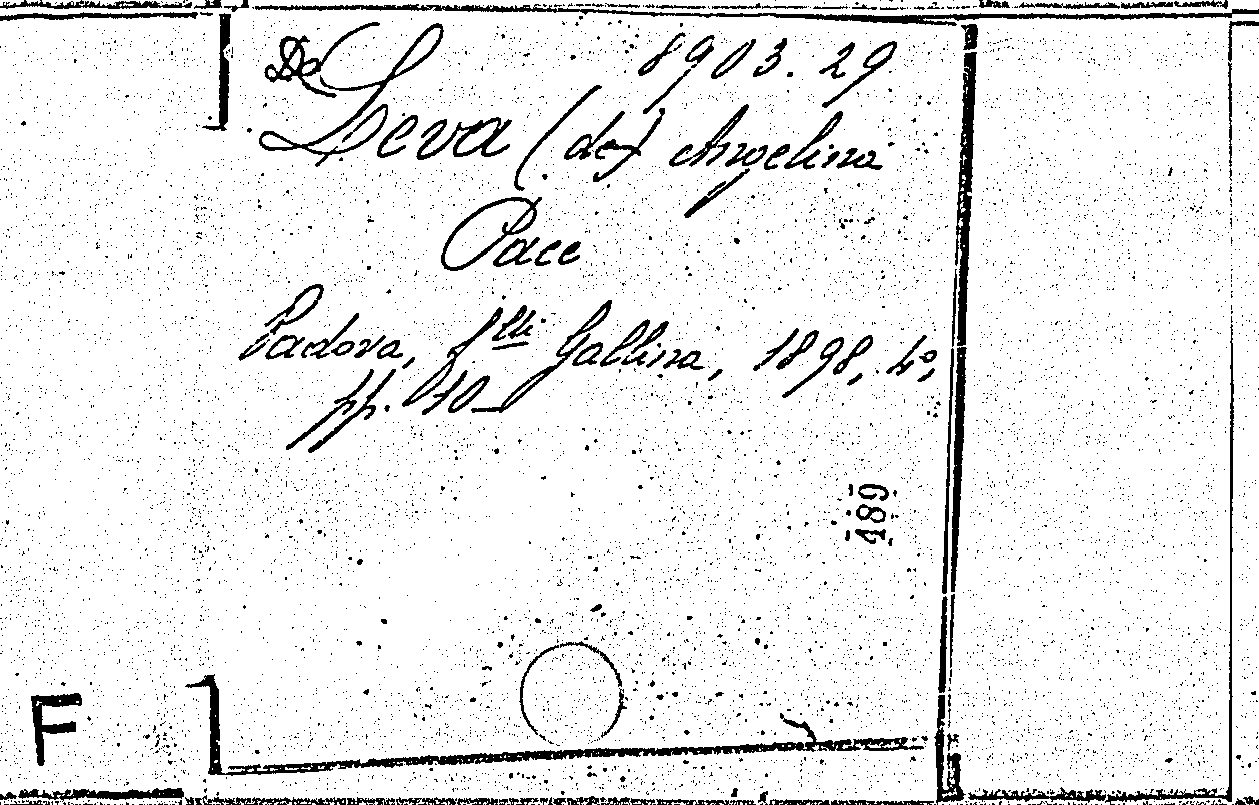 8903.29
De Leva (de) Angelina
Pace
Padova, f.lli Gallina, 1898, 4°,
pp. 10_
489
F